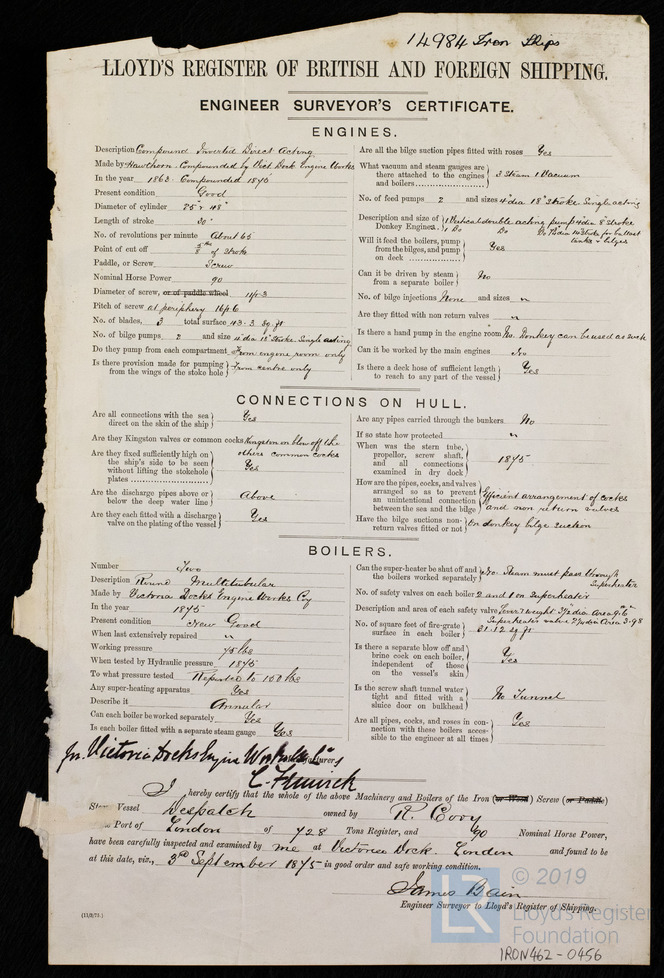 14984 Iron Ships
LLOYD'S REGISTER OF BRITISH AND FOREIGN SHIPPING.
ENGINEER SURVEYOR'S CERTIFICATE.
ENGINES.
Description Compound Inverted Direct Acting
Made by Hawthorn. Compounded by Vict. Dock Engine Works
In the year 1863. Compounded 1875
Present condition Good
Diameter of cylinder 25" & 48"
Length of stroke 30"
No. of revolutions per minute About 65
Point of cut off of Stroke
Paddle, or Screw Screw
Nominal Horse Power 90
Diameter of screw, or of paddle wheel 11ft 3
Pitch of screw at periphery 16ft 6
No. of blades, 3 total surface 43.3 sq. ft
No. of bilge pumps 2 and size 4"dia 18" Stroke Single acting
Do they pump from each compartment From engine room only
Is there provision made for pumping from the wings of the stoke hole From centre only
Are all the bilge suction pipes fitted with roses Yes
What vacuum and steam gauges are there attached to the engines and boilers 3 Steam 1 Vacuum
No. of feed pumps 2 and sizes 4"dia 18" Stroke Single acting
Description and size of Donkey Engines. 1 Vertical double acting pump 4"dia 8" Stroke
1 Do Do Do 7½dia 14 Stroke for ballast
tanks & bilges
Will it feed the boilers, pump from the bilges, and pump on deck Yes
Can it be driven by steam from a separate boiler No
No. of bilge injections None and sizes "
Are they fitted with non return valves "
Is there a hand pump in the engine room No. Donkey can be used as such
Can it be worked by the main engines No
Is there a deck hose of sufficient length to reach to any part of the vessel Yes
CONNECTIONS ON HULL.
Are all connections with the sea direct on the skin of the ship Yes
Are they Kingston valves or common cocks Kingston on blow off the
others common cocks
Are they fixed sufficiently high on the ship's side to be seen without lifting the stokehole plates Yes
Are the discharge pipes above or below the deep water line Above
Are they each fitted with a discharge valve on the plating of the vessel Yes
Are any pipes carried through the bunkers No
If so state how protected "
When was the stern tube, propellor, screw shaft, and all connections examined in dry dock 1875
How are the pipes, cocks, and valves arranged so as to prevent an unintentional connection between the sea and the bilge Efficient arrangement of cocks
and non return valves
Have the bilge suctions non-return valves fitted or not On donkey bilge suction
BOILERS.
Number Two
Description Round Multitubular
Made by Victoria Docks Engine Works Coy
In the year 1875
Present condition New Good
When last extensively repaired "
Working pressure 75 lbs
When tested by Hydraulic pressure 1875
To what pressure tested Reported to 150 lbs
Any super-heating apparatus Yes
Describe it Annular
Can each boiler be worked separately Yes
Is each boiler fitted with a separate steam gauge Yes
Can the super-heater be shut off and the boilers worked separately No. Steam must pass through
Superheater
No. of safety valves on each boiler 2 and 1 on Superheater
Description and area of each safety valve Lever & weight 3½ dia Area 9.6"
Superheater valve 2¼ dia Area 3.98
No. of square feet of fire-grate surface in each boiler 31.12 sq. ft
Is there a separate blow off and brine cock on each boiler, independent of those on the vessel's skin Yes
Is the screw shaft tunnel water tight and fitted with a sluice door on bulkhead No Tunnel
Are all pipes, cocks, and roses in connection with these boilers accessible to the engineer at all times Yes
for Victoria Docks Engine Works Co Ld
C. Fenwick
I hereby certify that the whole of the above Machinery and Boilers of the Iron (or Wood) Screw (or Paddle)
Steam Vessel Despatch owned by R. Cory
Port of London of 728 Tons Register, and 90 Nominal Horse Power,
have been carefully inspected and examined by me at Victoria Dock. London and found to be
at this date, viz., 3rd September 1875 in good order and safe working condition.
James Bain
Engineer Surveyor to Lloyd's Register of Shipping.
(11/2/75.)
LR
© 2019
Lloyd's Register
Foundation
IRON462-0456